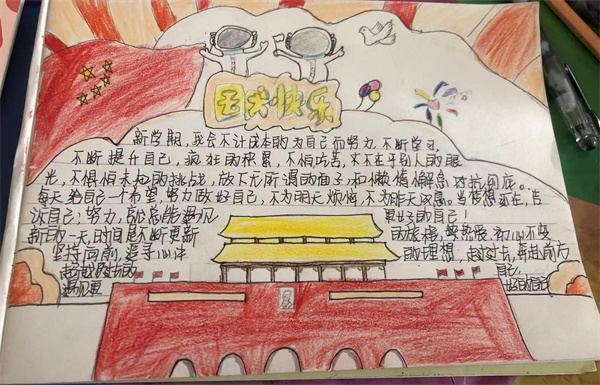 天快乐
新学期,我会不计成本的为自己而努力,不断学习,
不断提升自己,疯狂的积累,不怕吃苦,不在乎别人的眼
光,不惧怕未知的挑战,放下无所谓的面子,和懒惰懈怠对抗到底。
每天给自己一个希望,努力做好自己,不为明天烦恼,不为昨天叹息。当梦想还在,告
诉自己:努力,就总能遇见 更好的自己!
新的一天,时间是不断更新 的旅程,初心不变
坚持向前,追寻心中 的理想,奔赴前方
自己
遇见更 好的自己